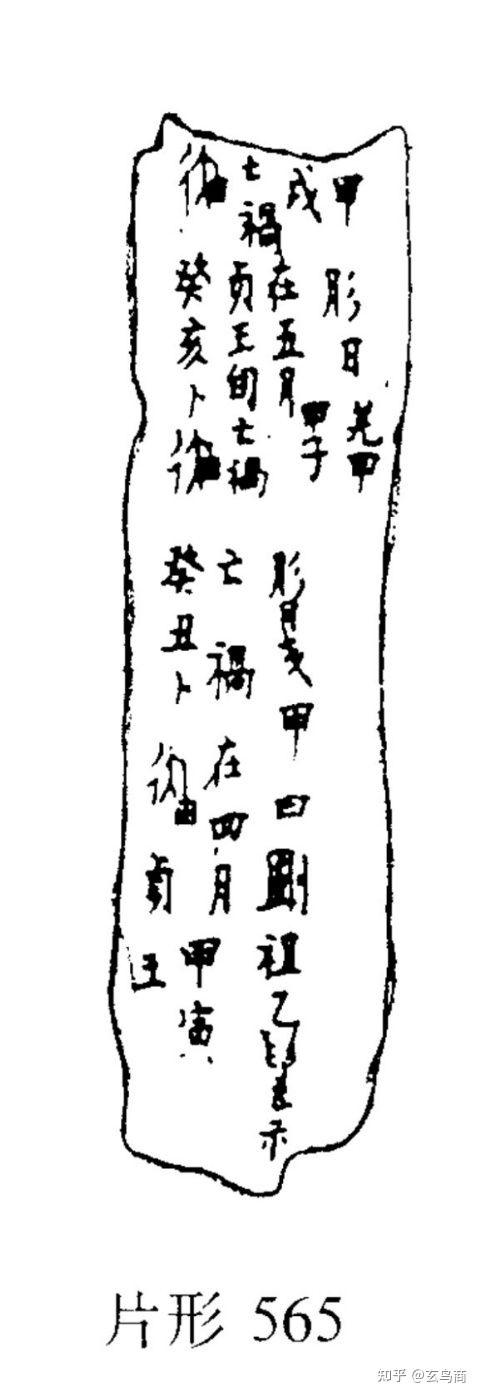 戌
甲
亡禍
癸亥卜
貞王旬亡禍
在五月
甲子
肜日羌甲
癸丑卜
貞王
亡禍在四月
甲寅
肜日戔甲曰
祖乙
示
片形 565
知乎 @玄鸟商